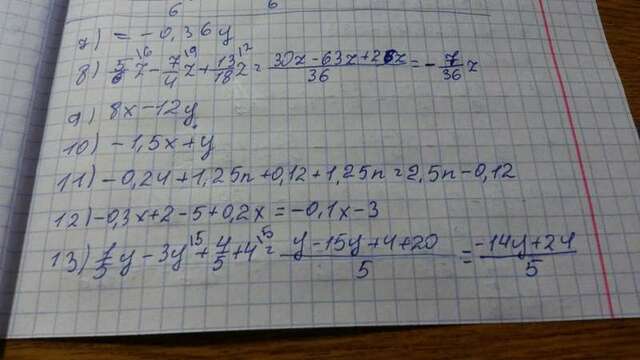 6 6
7) = -0,36y
8) 5/6 z \6 - 7/4 z \9 + 13/18 z \2 = (30z - 63z + 26z)/36 = - 7/36 z
9) 8x - 12y
10) -1,5x + y
11) -0,24 + 1,25n + 0,12 + 1,25n = 2,5n - 0,12
12) -0,3x + 2 - 5 + 0,2x = -0,1x - 3
13) 1/5 y - 3y \5 + 4/5 + 4 \5 = (y - 15y + 4 + 20)/5 = (-14y + 24)/5